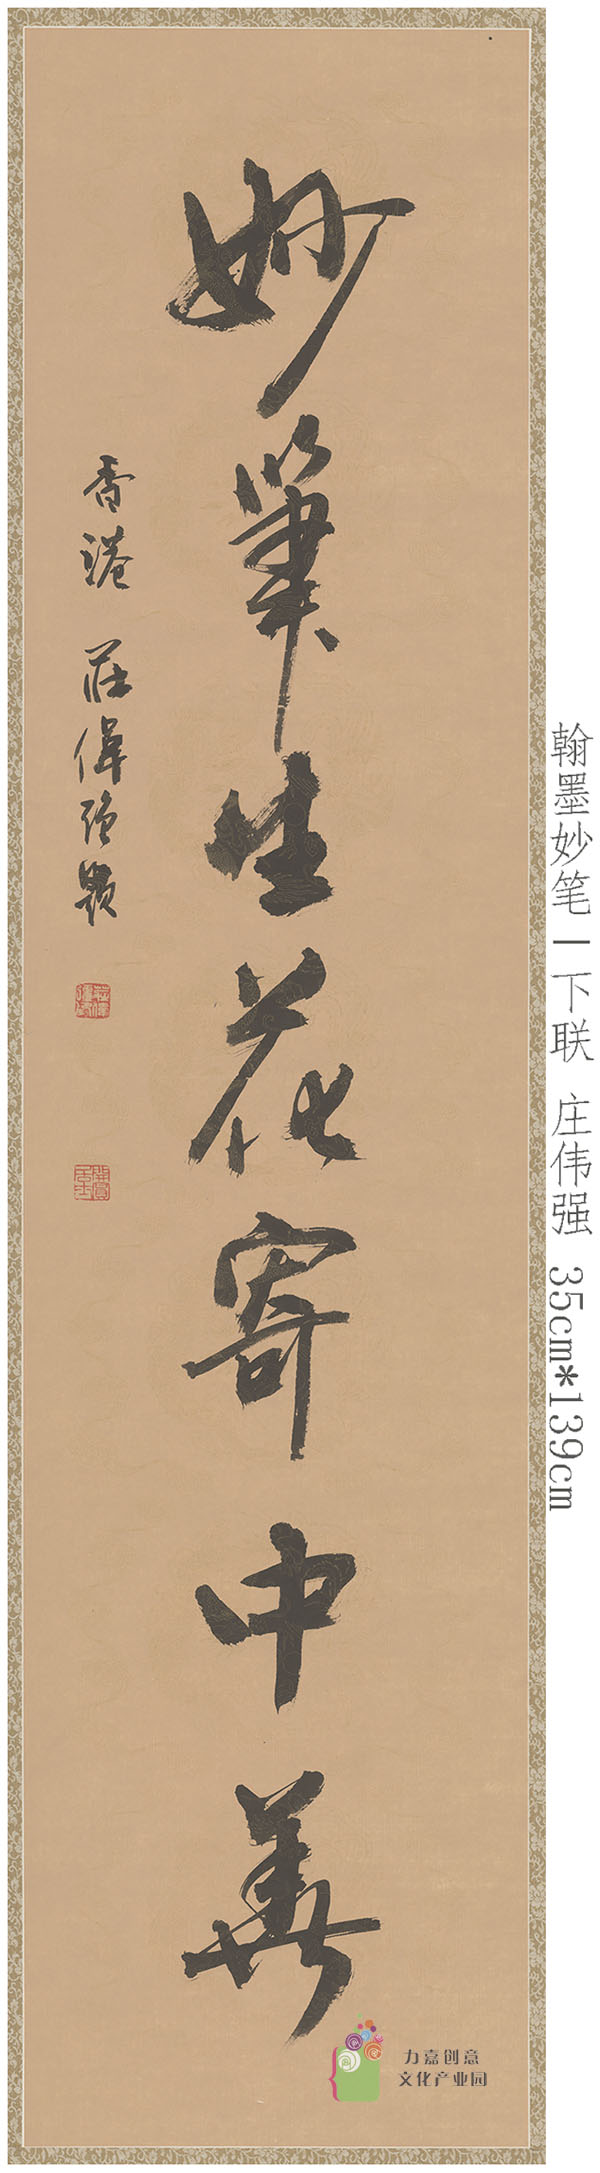 妙筆生花寄中華
香港 莊偉強題
翰墨妙笔一下联 庄伟强 35cm*139cm
力嘉创意
文化产业园